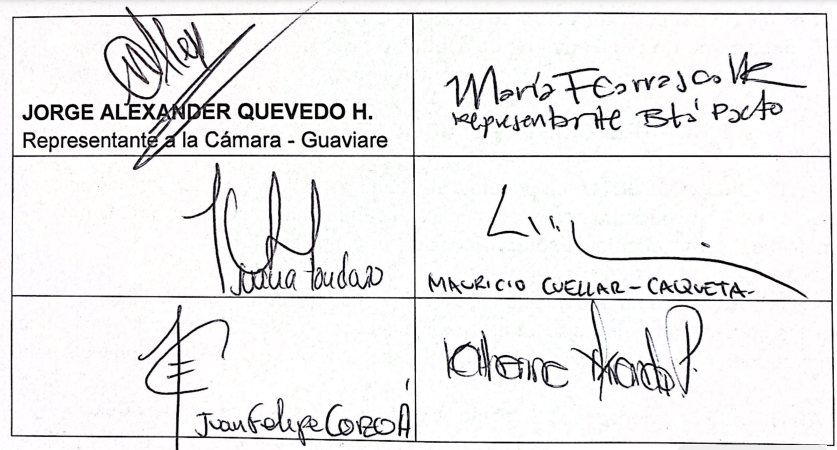 JORGE ALEXANDER QUEVEDO H.
Representante a la Cámara - Guaviare
María F Carrascal
Representante Btá Pacto
MAURICIO CUELLAR - CAQUETA-
Juan Felipe Corzo Á
Katherine P.